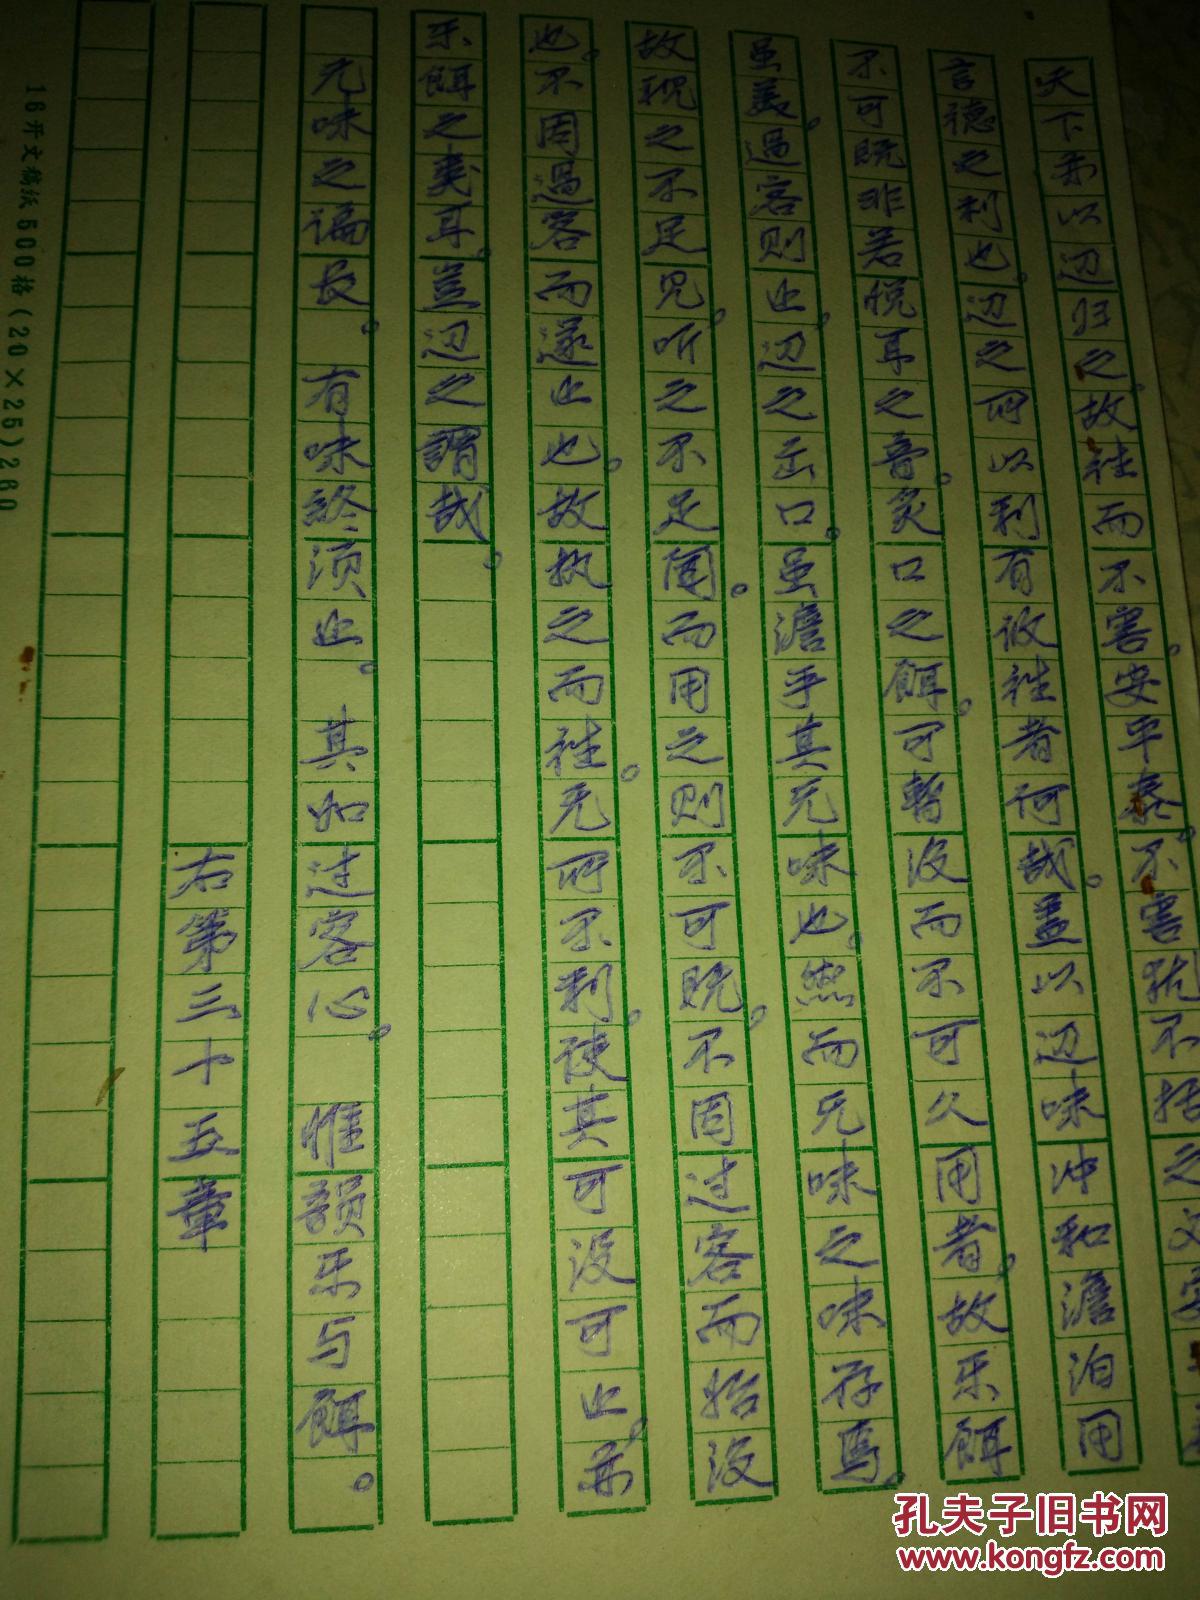 天下亦以辺归之。故往而不害。安平泰。不害犹不括之
言德之利也。辺之所以利有攸往者何哉。盖以辺味冲和澹泊用
不可既非若悦耳之音。爽口之餌。可暂设而不可久用者。故乐餌
虽美。過客则止。辺之出口。虽澹乎其无味也。然而无味之味存焉。
故視之不足见。听之不足闻。而用之则不可既。不因过客而始设
也。不因過客而遂止也。故执之而往。无所不利。使其可设可止。亦
乐餌之类耳。豈辺之謂哉。
无味之谝长。 有味終须止。 其如过客心。 惟韻乐与餌。
右第三十五章
16开文稿纸500格(20×25)260
孔夫子旧书网
www.kongfz.com